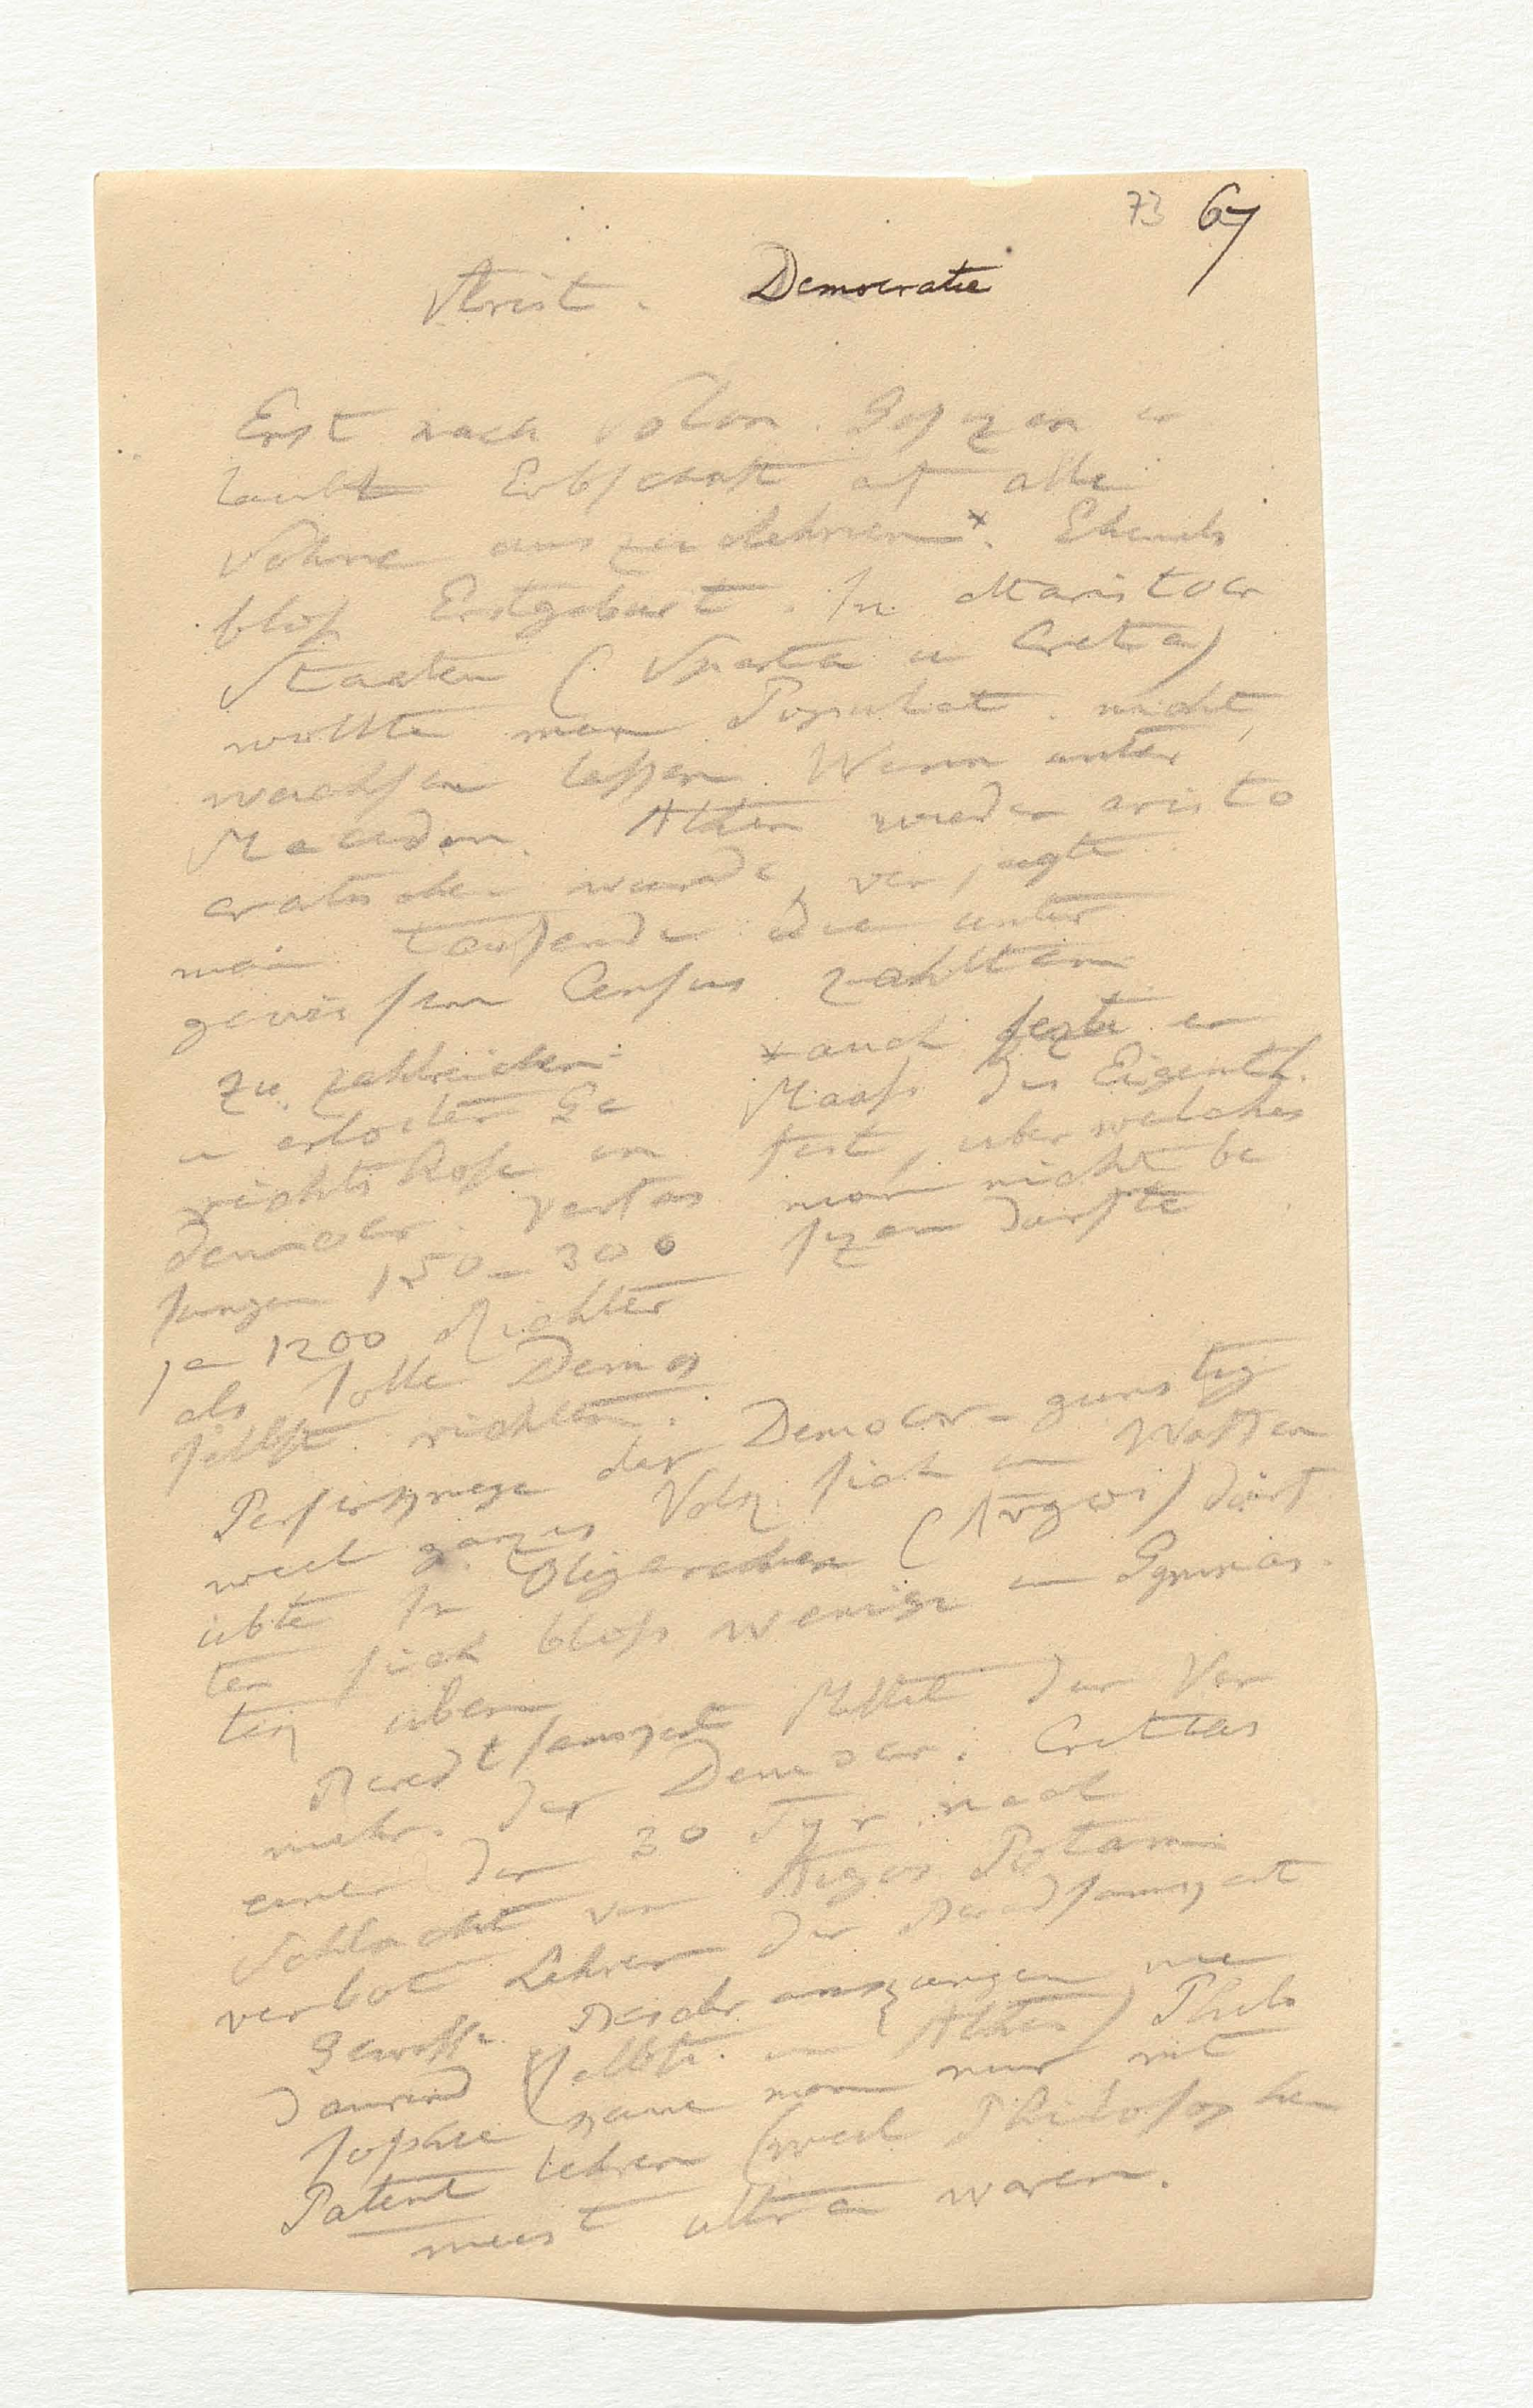 73 67
Arist. Democratie
Erst nach Solon. Gesezen er
laubt Erbschaft auf alle
Söhne auszudehnen*. Ehemals
blos Erstgeburt. In Aristocr
Staaten (Sparta u Creta)
wollte man Populat. nicht
wachsen lassen. Wenn unter
Macedon. Athen wieder aristo
cratischer wurde, verjagte
man tausende die unter
gewissem Census zahlten
zu zahlreichen
u erloster Ge
richtshofe in
democr. Verfas
sungen 150–300
ja 1200 Richter
als solle Demos
selbst richten.
*auch sezte er
Maaß des Eigenth.
fest, uber welches
man nicht be
sizen durfte
Perserkriege der Democr. gunstig
weil ganzes Volk sich in Waffen
übte In Oligarchien (Argos) dürf
ten sich bloß wenige in Gymnas
tik uben
Beredtsamkeit Mittel der Ver
mehr. der Democr. Critias
einer der 30 Tyr. nach
Schlacht von Aegos Potam
verbot Lehrer der Beredsamkeit
waren nie
daurend (selbst in Athen) Philo
sophie konnte man nur mit
Patent lehren (weil Philosophen
meist ultra waren.